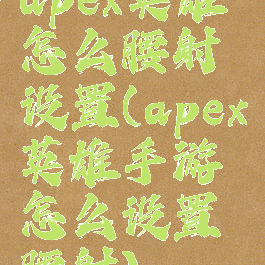 apex英雄
怎么腰射
设置(apex
英雄手游
怎么设置
腰射)